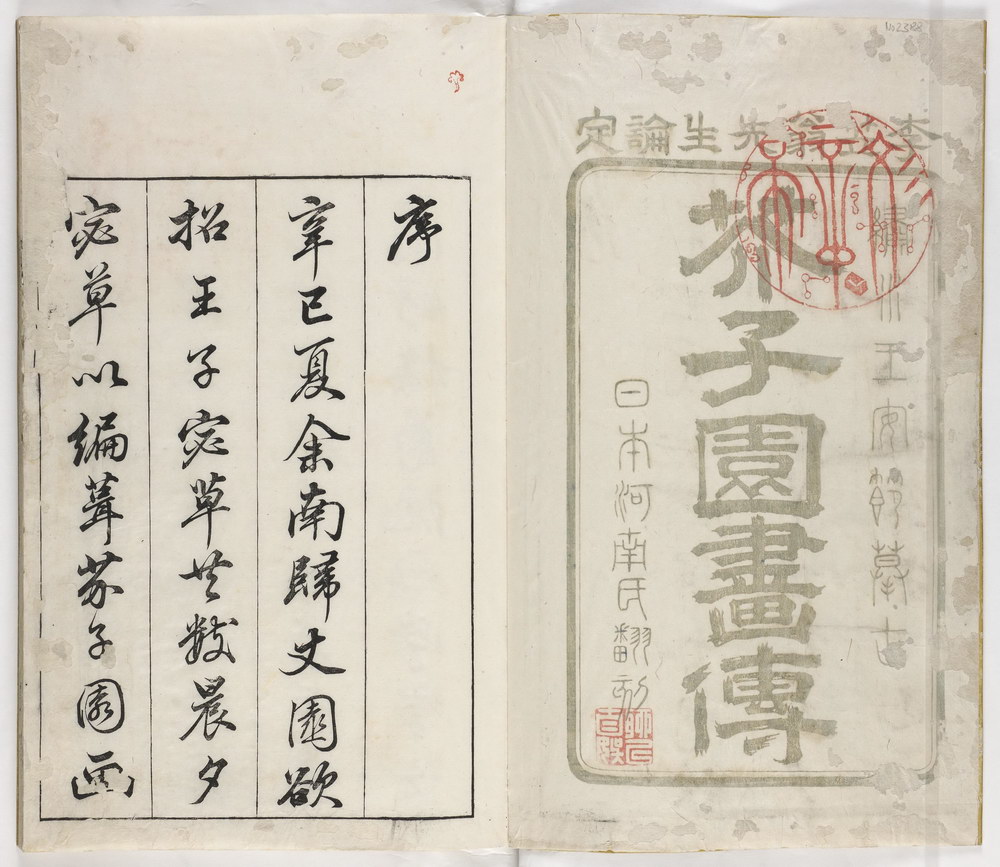 李笠翁先生論定
繡水王安節摹古
芥子園畫傳
日本河南氏翻刻
序
辛巳夏余南歸丈園欲
招王子宓草共數晨夕
宓草以編葺芥子園画